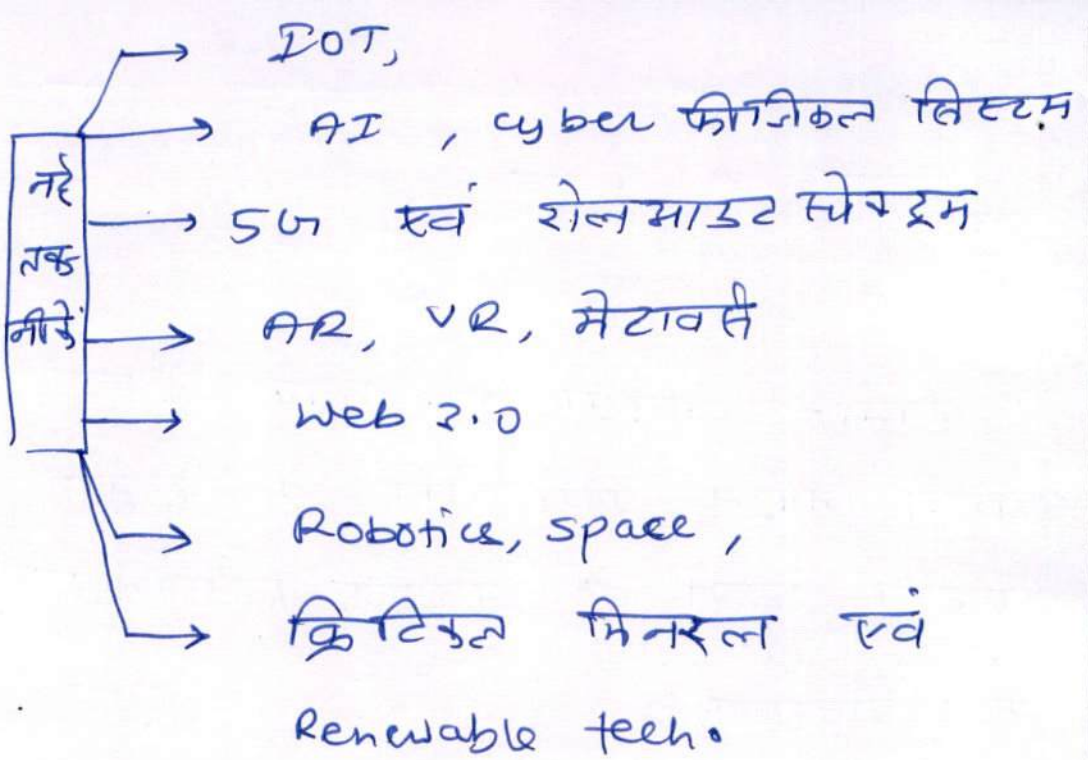 नई
तक
नीकें
IOT,
AI, cyber फीजीकल सिस्टम
5G एवं सेलमाउट स्पेक्ट्रम
AR, VR, मेटावर्स
Web 3.0
Robotics, space,
क्रिटिकल मिनरल एवं
Renewable tech.